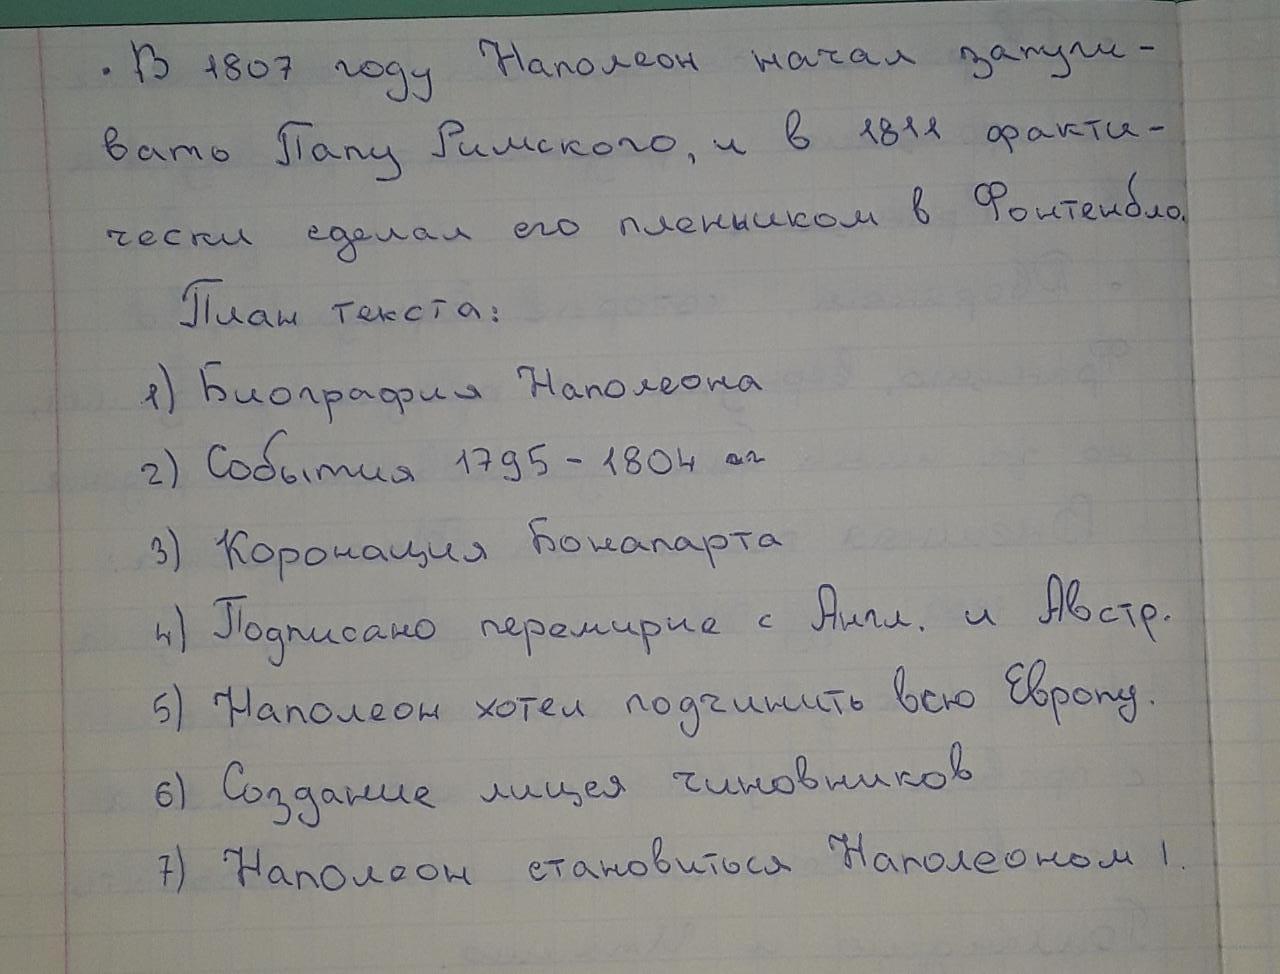 . В 1807 году Наполеон начал запуги-
вать Папу Римского, и в 1811 факти-
чески сделал его пленником в Фонтенбло.
План текста:
1) Биография Наполеона
2) События 1795 - 1804 гг
3) Коронация Бонапарта
4) Подписано перемирие с Англ. и Австр.
5) Наполеон хотел подчинить всю Европу.
6) Создание лицея чиновников
7) Наполеон становиться Наполеоном I.